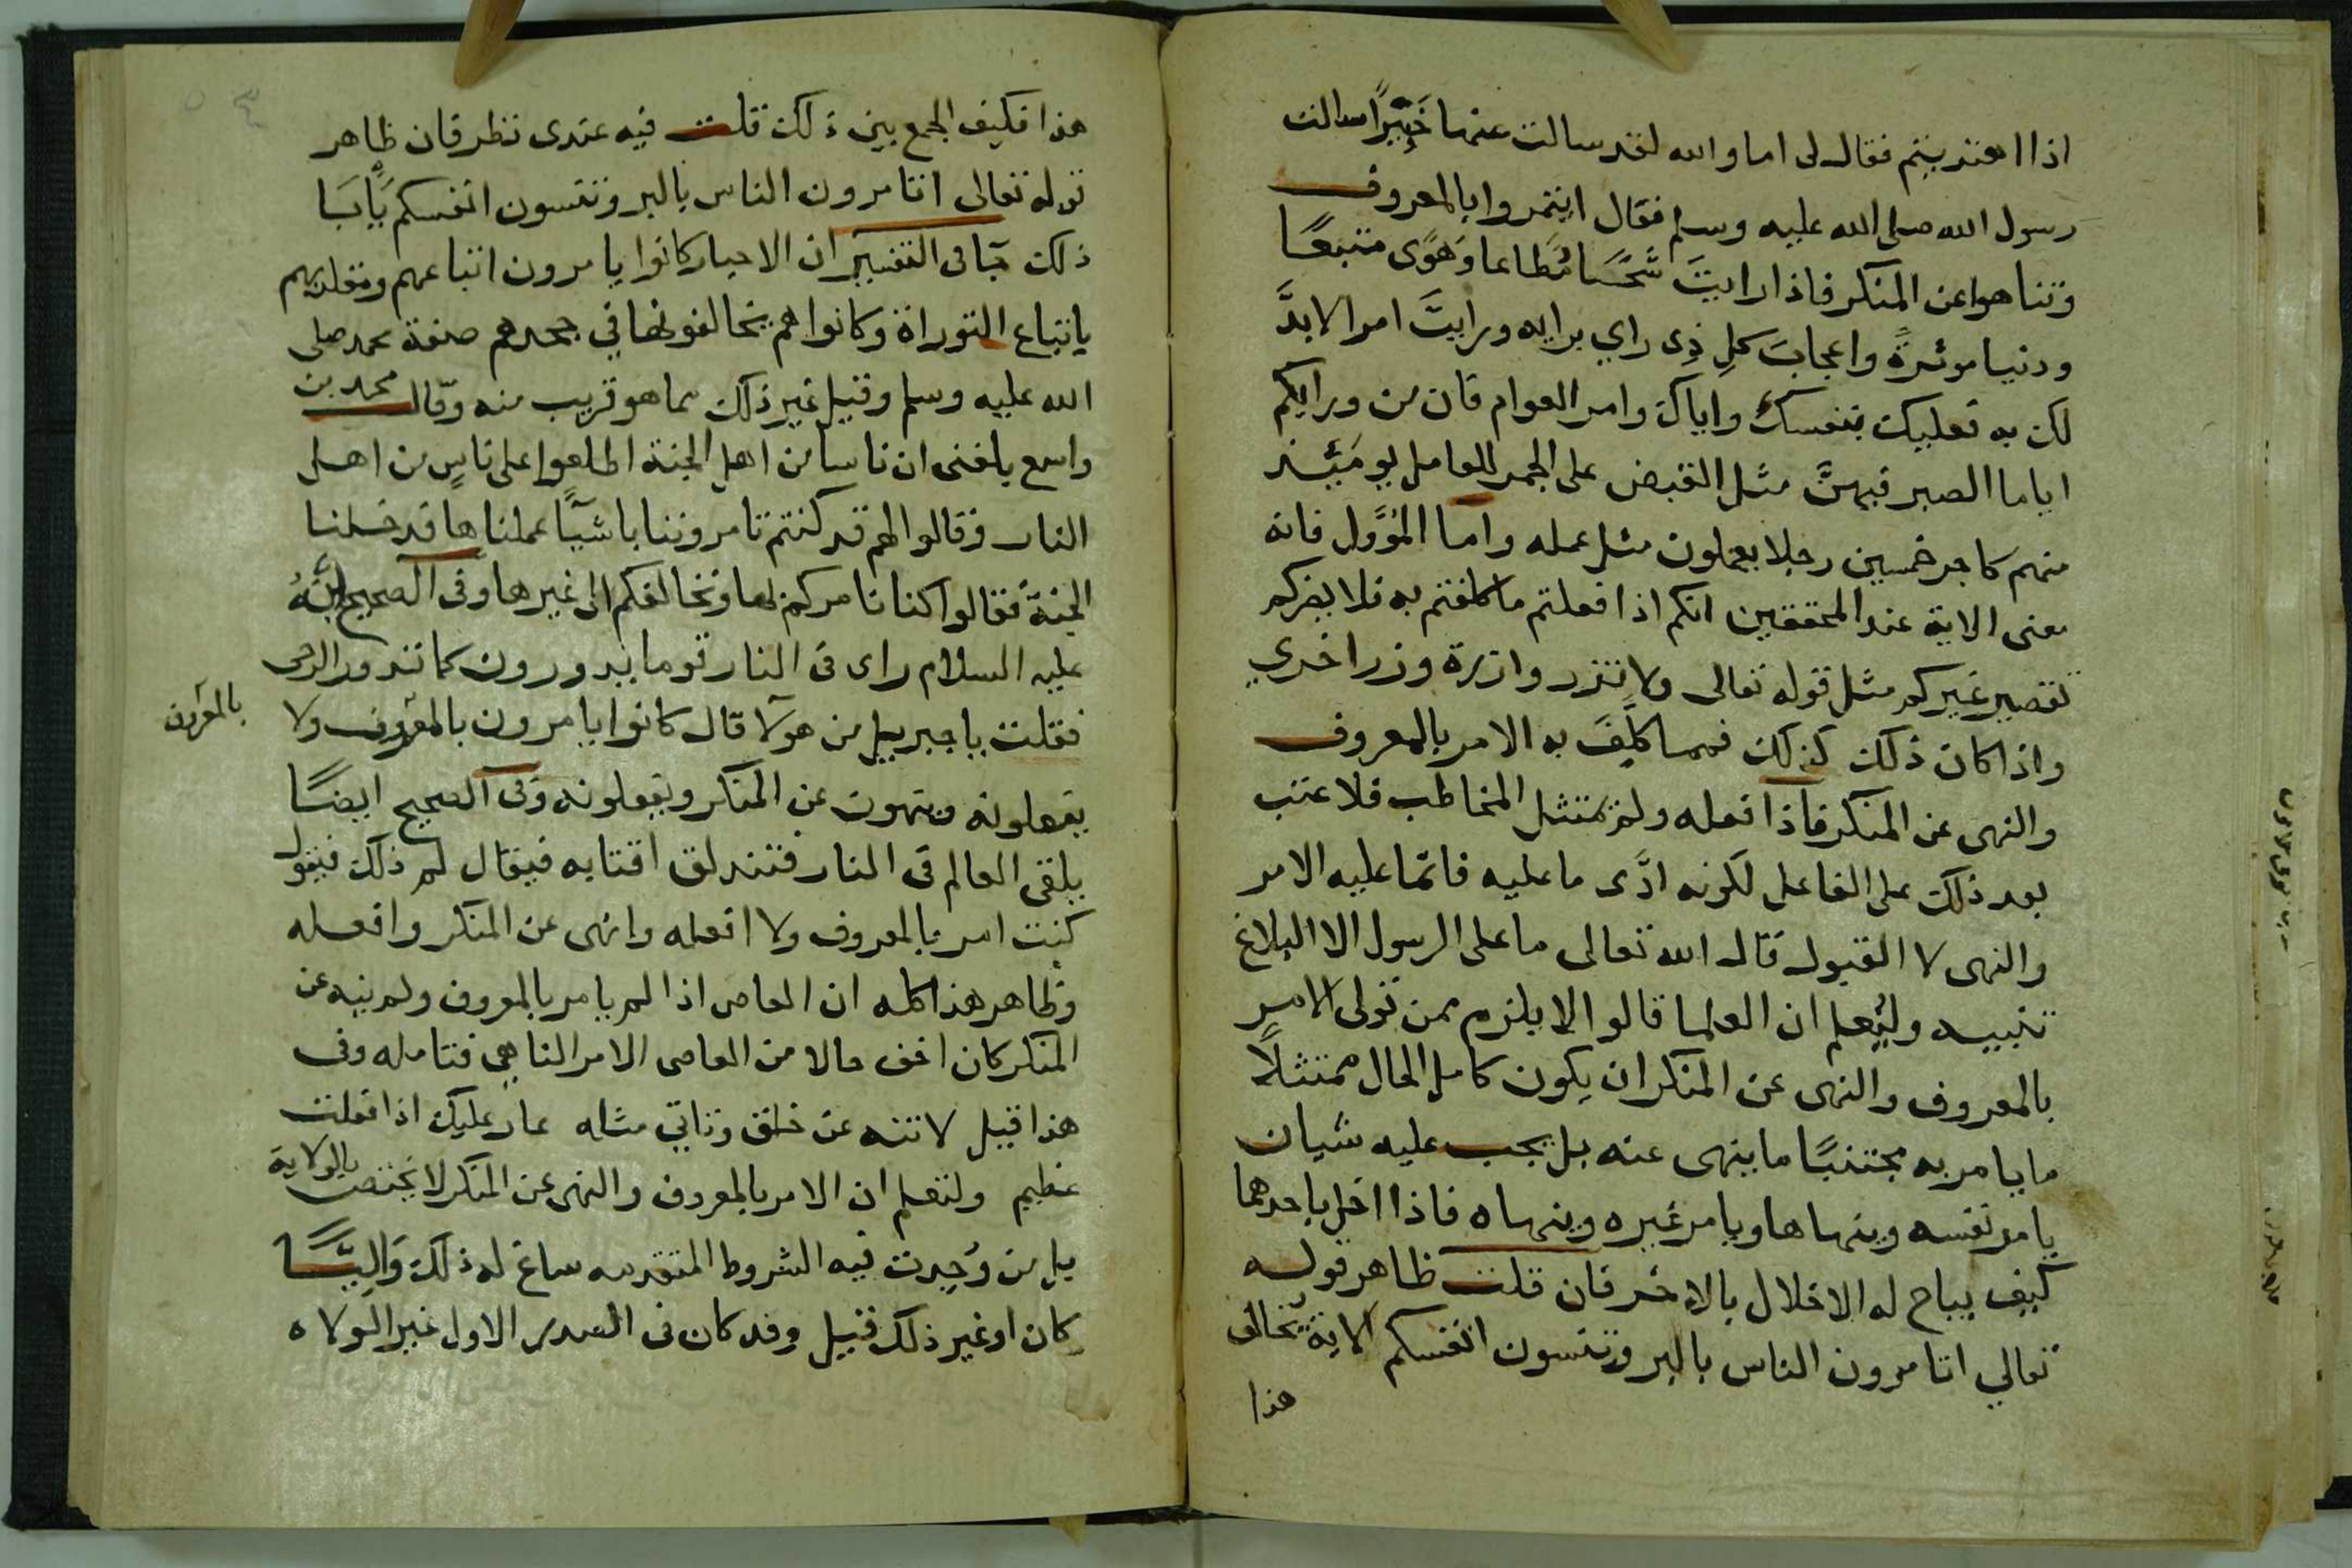 اذا اهتديتم فقال لى اما والله لقد سالت عنها خَبِيْرًا سالت
رسول الله صلى الله عليه وسلم فقال ايتمروا بالمعروف
وتناهوا عن المنكر فاذا رايتَ شُحًّا مُطَاعا وَهَوًى متبعًا
ودنيا موثرةً واعجابَ كلِ ذِى راي برايه ورايتَ امرا لابدَّ
لك به فعليك بنفسك واياك وامر العوام فان من ورايكم
اياما الصبر فيهنَّ مثل القبض على الجمر للعامل يوميئذ
منهم كاجر خمسين رجلا يعملون مثل عمله واما المُؤَوَّل فانه
معنى الاية عند المحققين انكم اذا فعلتم ما كلفتم به فلا يضركم
تقصير غيركم مثل قوله تعالى ولا تزر وازرة وزر اخري
واذا كان ذلك كذلك فمما كُلِّفَ به الامر بالمعروف
والنهى عن المنكر فاذا فعله ولم يمتثل المخاطب فلا عتب
بعد ذلك على الفاعل لكونه ادَّى ما عليه فانما عليه الامر
والنهى لا القبول قال الله تعالى ما على الرسول الا البلاغ
تنبيه وليُعلم ان العلما قالوا لا يلزم ممن تولى الامر
بالمعروف والنهى عن المنكر ان يكون كامل الحال ممتثلًا
ما يامر به مجتنبًا ما ينهى عنه بل يجب عليه شيان
يامر نفسه وينهاها ويامر غيره وينهاه فاذا اخل باحدهما
كيف يباح له الاخلال بالاخر فان قلت ظاهر قوله
تعالي اتامرون الناس بالبر وتنسون انفسكم الاية يخالف
هذا
هذا فكيف الجمع بين ذلك قلت فيه عندى نظر فان ظاهر
قوله تعالى اتامرون الناس بالبر وتنسون انفسكم يَابَا
ذلك جا فى التفسير ان الاحبار كانوا يامرون اتباعهم ومقلديهم
باتباع التوراة وكانوا هم يخالفونها في جحدهم صفة محمد صلى
الله عليه وسلم وقيل غير ذلك مما هو قريب منه وقال محمد بن
واسع بلغنى ان ناسا من اهل الجنة اطلعوا على ناسٍ من اهل
النار فقالوا لهم قد كنتم تامروننا باشيآ عملناها فدخلنا
الجنة فقالوا كنا نامركم بها ونخالفكم الى غيرها وفى الصحيح انَّهُ
عليه السلام راى فى النار قوما يدورون كما تدور الرحى
فقلت يا جبرييل من هولآ قال كانوا يامرون بالمعروف ولا
بالمعروف
يفعلونه وينهون عن المنكر ويفعلونه وفى الصحيح ايضًا
يلقى العالم فى النار فتندلق اقتابه فيقال لم ذلك فيقول
كنت امر بالمعروف ولا افعله وانهى عن المنكر وافعله
وظاهر هذا كله ان العاصى اذا لم يامر بالمعروف ولم ينه عن
المنكر كان اخف حالا من العاصى الامر الناهي فتامله وفى
هذا قيل لا تنه عن خلق وتاتي مثله عار عليك اذا فعلت
عظيم ولتعلم ان الامر بالمعروف والنهى عن المنكر لا يختص بالولاية
بل من وُجِدت فيه الشروط المتقدمه ساغ له ذلك وَالِيًا
كان او غير ذلك قيل وقد كان فى الصدر الاول غير الولاه